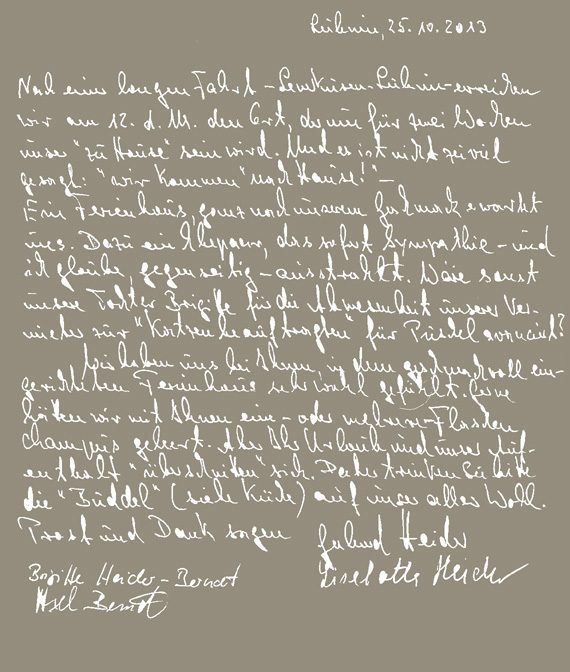 Lubmin, 25.10.2013
Nach einer langen Fahrt - Leverkusen-Lubmin - erreichten
wir am 12. d. M. den Ort, der nun für zwei Wochen
unser "zu Hause" sein wird. Und es ist nicht zu viel
gesagt: "wir kommen" nach Hause!" -
Ein Ferienhaus, ganz nach unserem Geschmack erwartet
uns. Dazu ein Ehepaar, das sofort Sympathie - und
ich glaube, gegenseitig - ausstrahlt. Wäre sonst
unsere Tochter Brigitte für die Abwesenheit unserer Ver-
mieter zur "Katzenbeauftragten" für avanciert?
Wir haben uns bei Ihnen, in dem geschmackvoll ein-
gerichteten Ferienhaus sehr wohl gefühlt. Gerne
hätten wir mit Ihnen eine - oder mehrere - Flaschen
Champus geleert. Aber Ihr Urlaub und unser Auf-
enthalt "überschneiden" sich. Daher trinken Sie bitte
die "Buddel" (siehe Küche) auf unser aller Wohl.
Prost und Dank sagen
Gerhard Heider
Liselotte Heider
Brigitte Heider-Berndt
Axel Berndt